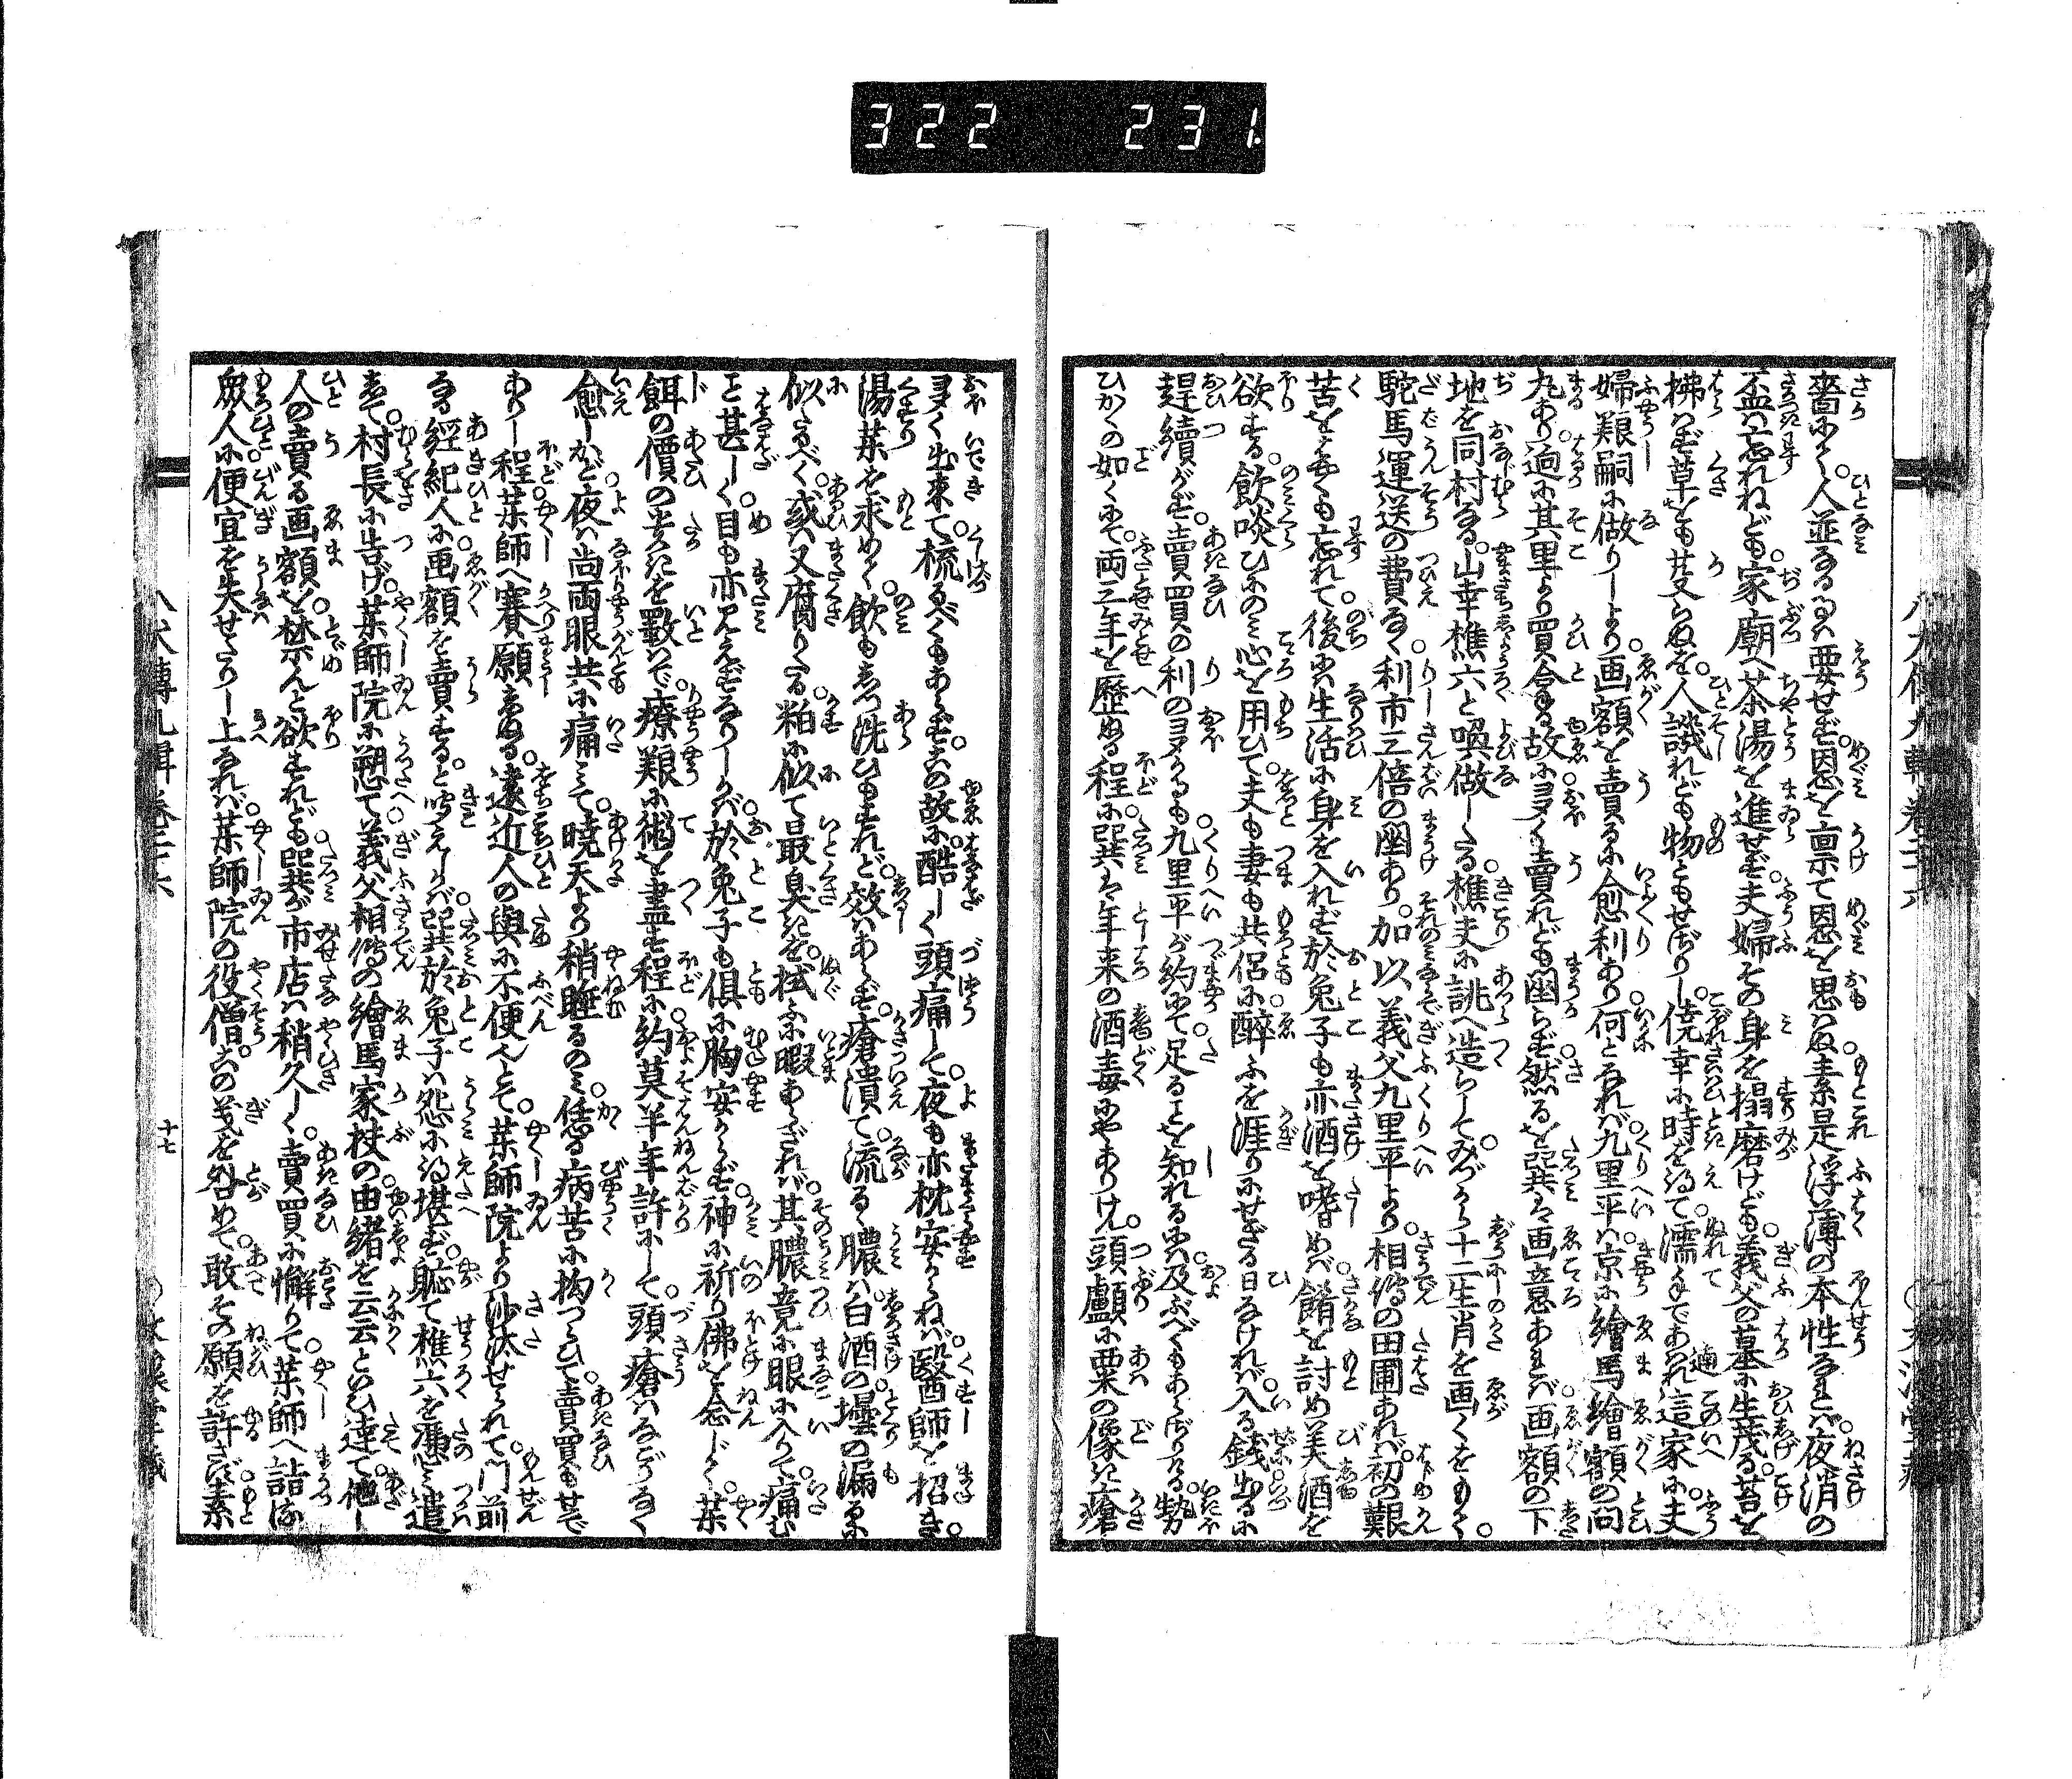 322 231
嗇にて。人並なるは要せず。恩を稟て恩を思はぬ。素是浮薄の本性なれば。夜消の
盃は忘れねども。家廟へ茶湯を進せず。夫婦その身を搨磨けども。義父の墓に生茂る。苔を
拂はず草をも芟らぬを。人譏れども物ともせざりし。僥幸に時を得て。濡手であはれ這家に。夫
婦艱嗣に做りしより。画額を賣るに愈利あり。何となれば九里平は。京に繪馬繪額の問
丸あり。迥に其里より買合する故に。多く賣れども凾らず。然るを巽は画意あれば。画額の下
地を同村なる。山幸樵六と喚做したる。樵夫に誂へ造らして。みづから十二生肖を画くをもて。
駝馬運送の費なく。利市三倍の凾あり。加以義父九里平より。相傳の田圃あれば。初の艱
苦を夫妻も忘れて。後は生活に身を入れず。於兎子も亦酒を嗜めば。餚を討め美酒を
欲する。飲啖ひにのみ心を用ひて。夫も妻も共侶に。醉ふを涯りにせざる日なければ。入る錢出るに
趕續がず。賣買の利の多かるも。九里平が約にて。足ることを知れるには。及ぶべくもあらざりける。勢
ひかくの如くにて。両三年を歴ぬる程に。巽は年来の酒毒にやありけん。頭顱に粟の像き瘡
多く出来て。梳るべくもあらず。この故に酷しく頭痛して。夜も亦枕安からねば。醫師を招き。
湯藥を求めて。飲もしつ洗ひもすれど。效はあらず。瘡潰て流るゝ膿は。白酒の壜の漏るに
似たるべく。或は又腐りたる。粕に似て最臭きを。拭ふに暇あらざれば。其膿竟に眼に入りて。痛む
こと甚しく。目も亦見えずなりしかば。於兎子も倶に胸安からず。神に祈り佛を念じて。藥
餌の價の貴きを數はで。療艱に術を盡す程に。約莫半年許にして。頭瘡はなごりなく
愈しかど。夜は尚両眼共に痛みて。曉天より稍睡るのみ。恁る病苦に拘つらひて。賣買も せで
ありし程。藥師へ賽願しぬる。遠近人の與に不便とて。藥師院より沙汰せられて。門前
なる經紀人に。画額を賣すると聞えしかば。巽於兎子は怨に得堪ず。恥て樵六を憑て遣
して。村長に告げ藥師院に愬て。義父相傳の繪馬家杖の由緒を云云といひ達て。他
人の賣る画額を。禁んと欲すれども。巽が市店は稍久しく。賣買に懈りて。藥師へ詣ぬる
衆人に。便宜を失せたりし上なれば。藥師院の役僧。この義を咎めて。敢その願を許さず。素
八犬傳九輯卷二十六
十七